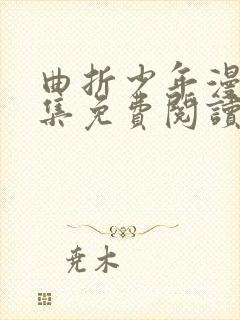 曲折少年漫
集免費閱讀
尧木